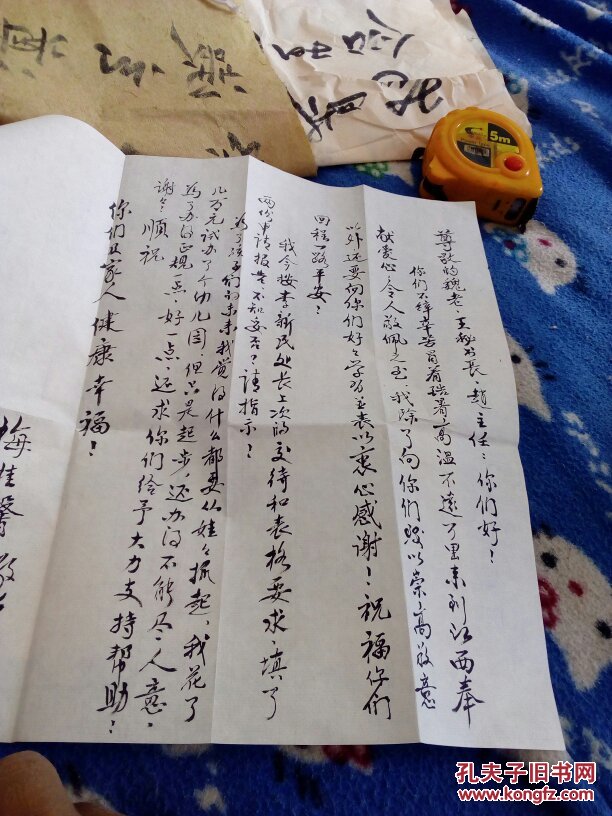 尊敬的魏老、王秘书长、赵主任：你们好！
你们不辞辛苦冒着酷暑高温不远万里来到江西奉
献爱心，令人敬佩之至，我除了向你们致以崇高敬意
以外还要向你们好好学习并表以衷心感谢！祝福你们
回程一路平安！
我今按李新民处长上次的交待和表格要求，填了
两份申请报告不知妥否？请指示！
为了孩子们的未来我觉得什么都要从娃娃抓起，我花了
几万元试办了个幼儿园，但只是起步，还办得不能尽人意，
为了办得正规一点、好一点，还求你们给予大力支持帮助！
谢谢 顺祝
你们及家人健康幸福！
梅佳馨敬
5m
孔夫子旧书网
www.kongfz.com